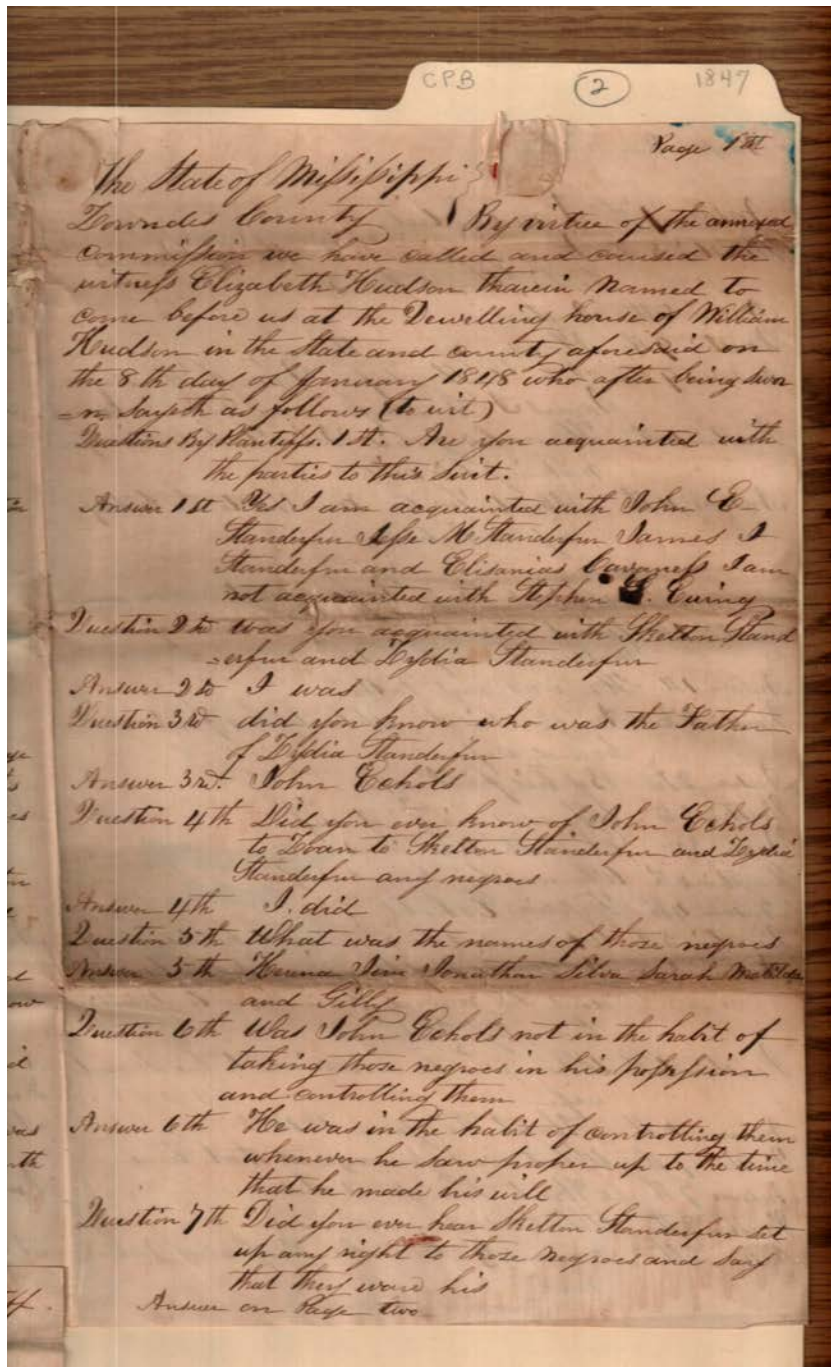 CPB 2 1847
Page 1st
The State of Missisippi
Lowndes County By virtue of the annexed
commission we have called and caused the
witness Elizabeth Hudson tharein Named to
come before us at the Dewelling house of William
Hudson in the State and county aforesaid on
the 8th day of January 1848 who after being swor
=n, Sayeth as follows (to wit)
Questions By Plantiffs. 1st. Are you acquainted with
the parties to this Suit.
Answer 1st Yes I am acquainted with John E
Standerfur Jesse M Standerfur James I
Standerfur and Elisanias Cavaness I am
not acquainted with Stephen Ewing
Question 2d Was you acquainted with Skelton Stand
=erfur and Lydia Standerfur
Answer 2d I was
Question 3d did you know who was the Father
of Lydia Standerfur
Answer 3rd. John Echols
Question 4th Did you ever know of John Echols
to Loan to Skelton Standerfur and Lydia
Standerfur any negroes
Answer 4th I did
Question 5th What was the names of those negroes
Answer 5th Jonathan Silva Sarah Matilda
and Gilly
Question 6th Was John Echols not in the habit of
taking those negroes in his possession
and controlling them
Answer 6th He was in the habit of controlling them
whenever he saw proper up to the time
that he made his will
Question 7th Did you ever hear Skelton Standerfur set
up any right to those negroes and say
that they ware his
Answer on Page two